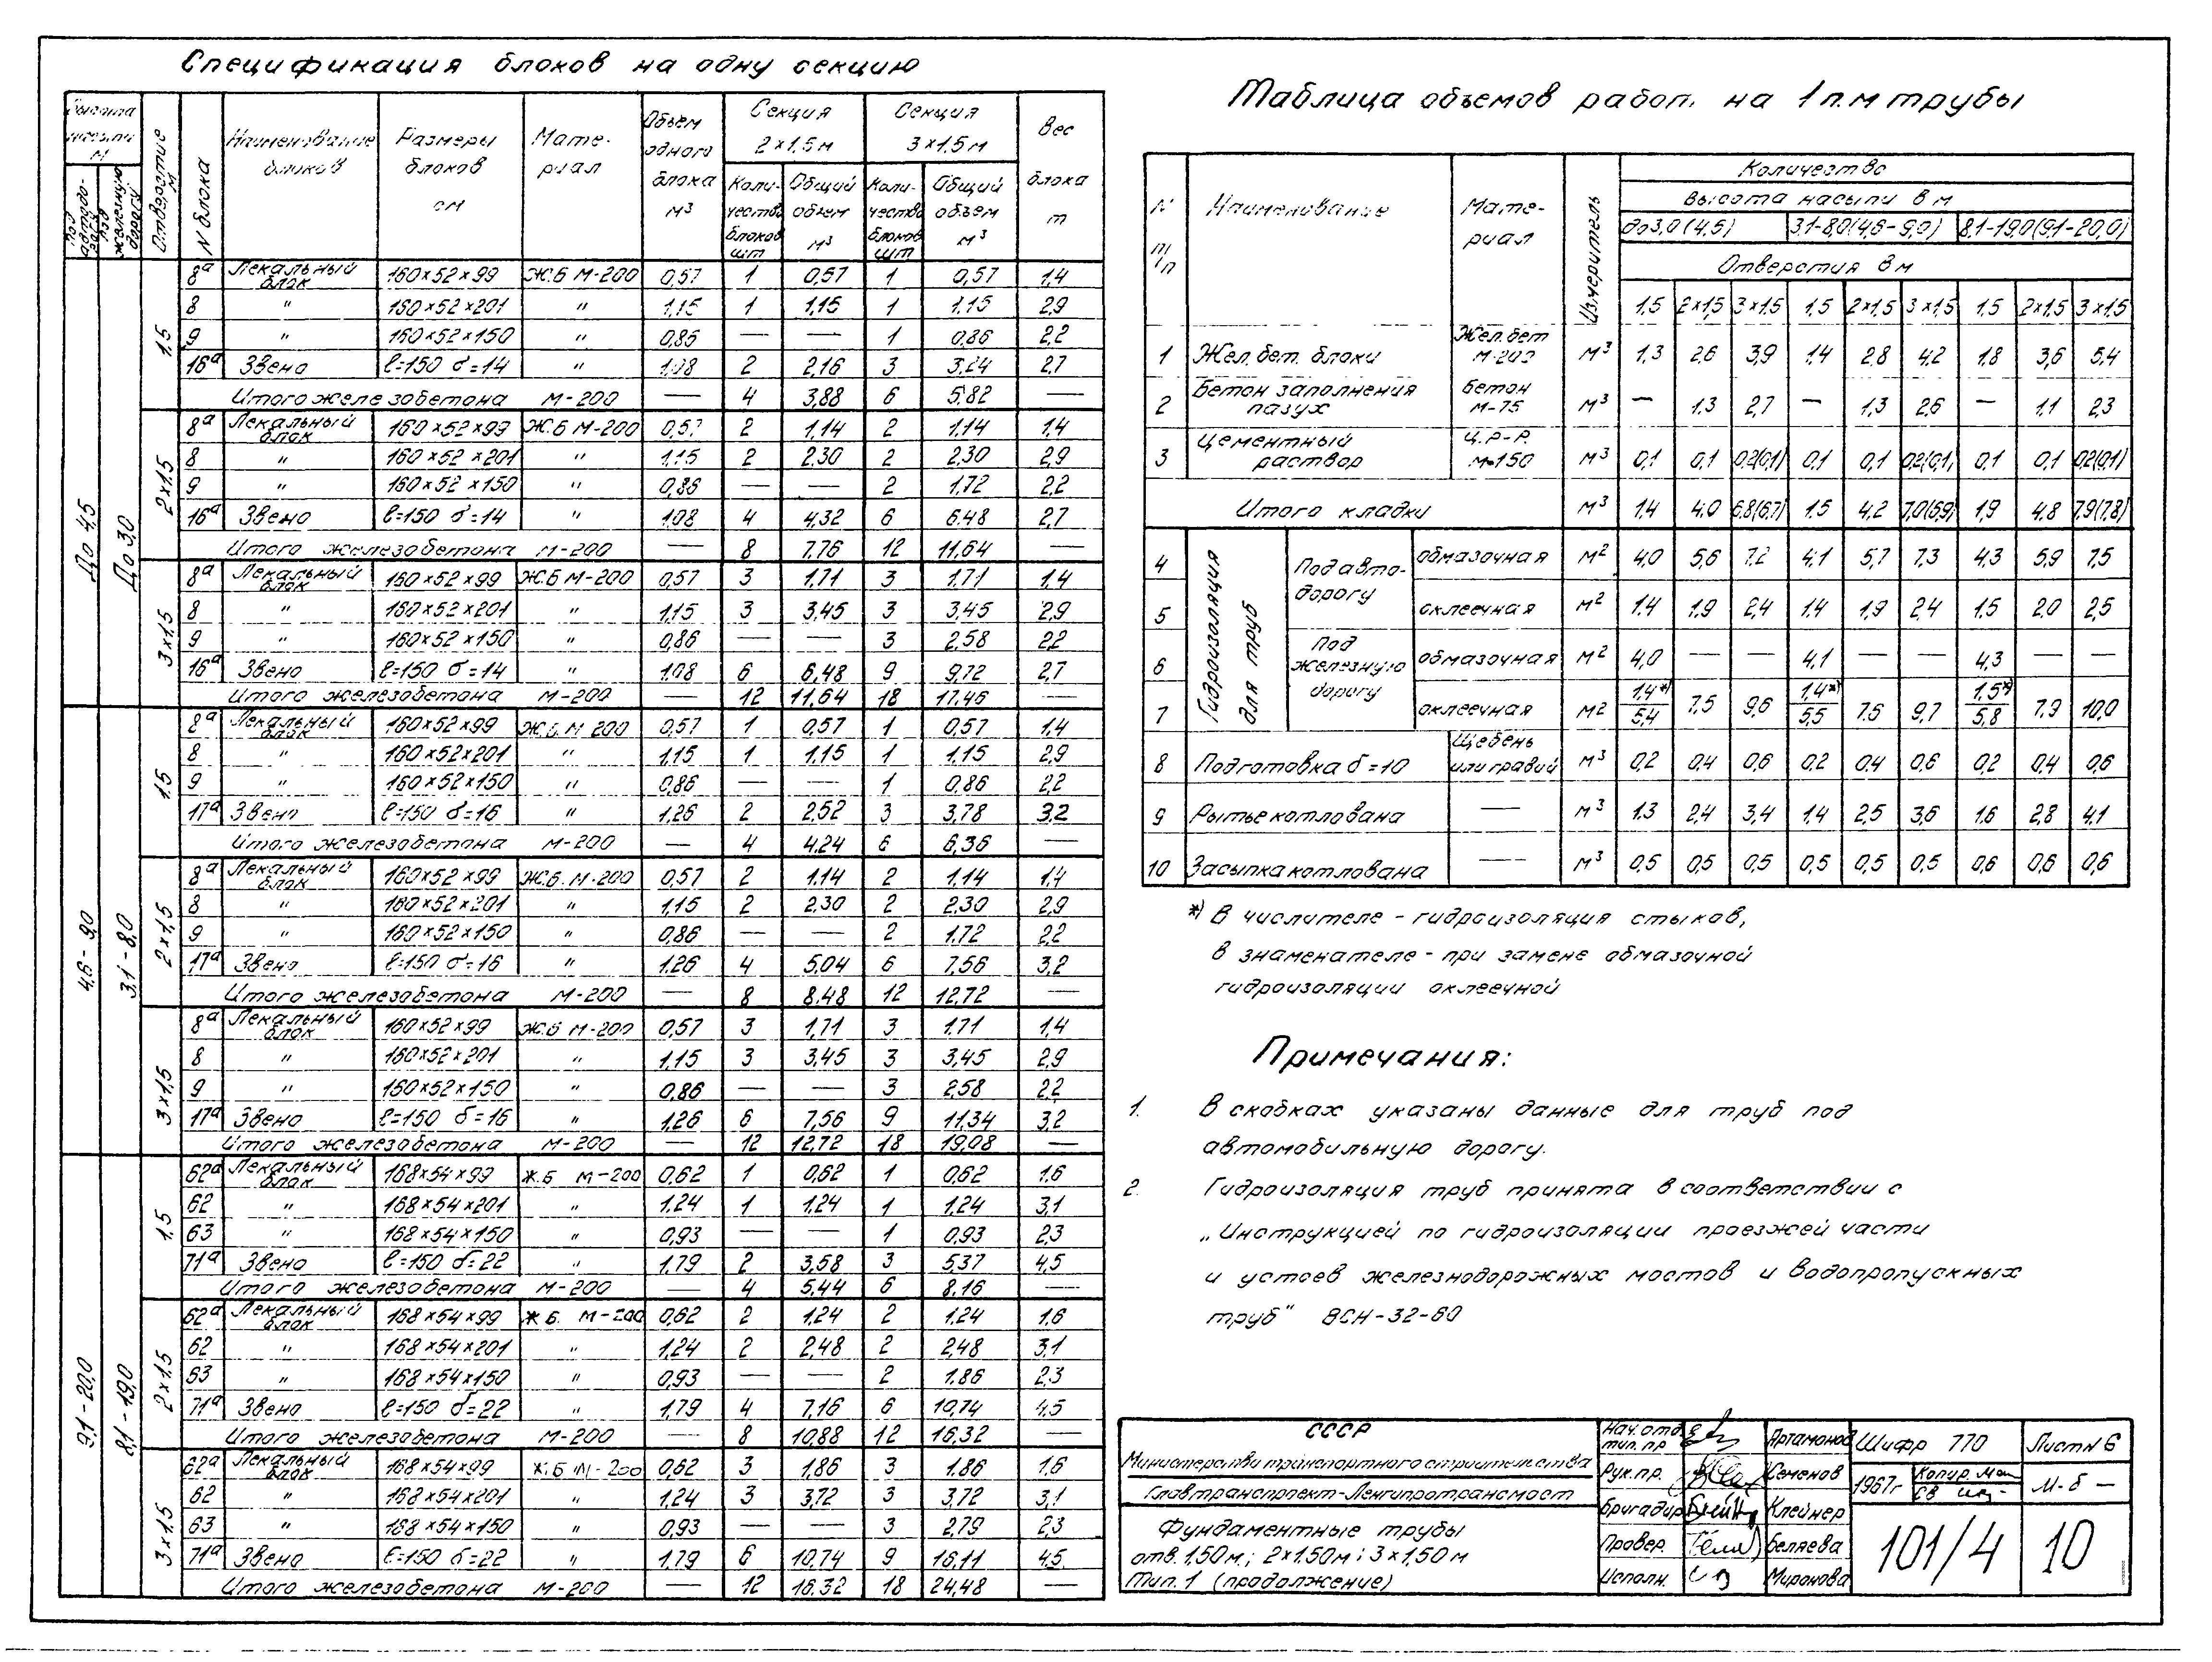 Спецификация блоков на одну секцию
Высота насыпи м | Отверстие м | N блока | Наименование блоков | Размеры блоков см | Материал | Объем одного блока м³ | Секция 2×1,5м | Секция 3×1,5м | Вес блока т
Под автодорогу | Под железную дорогу | Количество блоков шт | Общий объем м³ | Количество блоков шт | Общий объем м³
До 4,5 | До 3,0
1,5
8ª Лекальный блок 160×52×99 Ж.Б М-200 0,57 1 0,57 1 0,57 1,4
8 " 160×52×201 " 1,15 1 1,15 1 1,15 2,9
9 " 160×52×150 " 0,86 — — 1 0,86 2,2
16ª Звено ℓ=150 δ=14 " 1,08 2 2,16 3 3,24 2,7
Итого железобетона М-200 — 4 3,88 6 5,82 —
2×1,5
8ª Лекальный блок 160×52×99 Ж.Б М-200 0,57 2 1,14 2 1,14 1,4
8 " 160×52×201 " 1,15 2 2,30 2 2,30 2,9
9 " 160×52×150 " 0,86 — — 2 1,72 2,2
16ª Звено ℓ=150 δ=14 " 1,08 4 4,32 6 6,48 2,7
Итого железобетона М-200 — 8 7,76 12 11,64 —
3×1,5
8ª Лекальный блок 160×52×99 Ж.Б М-200 0,57 3 1,71 3 1,71 1,4
8 " 160×52×201 " 1,15 3 3,45 3 3,45 2,9
9 " 160×52×150 " 0,86 — — 3 2,58 2,2
16ª Звено ℓ=150 δ=14 " 1,08 6 6,48 9 9,72 2,7
Итого железобетона М-200 — 12 11,64 18 17,46 —
4,6-9,0 | 3,1-8,0
1,5
8ª Лекальный блок 160×52×99 Ж.Б. М 200 0,57 1 0,57 1 0,57 1,4
8 " 160×52×201 " 1,15 1 1,15 1 1,15 2,9
9 " 160×52×150 " 0,86 — — 1 0,86 2,2
17ª Звено ℓ=150 δ=16 " 1,26 2 2,52 3 3,78 3,2
Итого железобетона М-200 — 4 4,24 6 6,36 —
2×1,5
8ª Лекальный блок 160×52×99 Ж.Б. М-200 0,57 2 1,14 2 1,14 1,4
8 " 160×52×201 " 1,15 2 2,30 2 2,30 2,9
9 " 160×52×150 " 0,86 — — 2 1,72 2,2
17ª Звено ℓ=150 δ=16 " 1,26 4 5,04 6 7,56 3,2
Итого железобетона М-200 — 8 8,48 12 12,72 —
3×1,5
8ª Лекальный блок 160×52×99 Ж.Б М-200 0,57 3 1,71 3 1,71 1,4
8 " 160×52×201 " 1,15 3 3,45 3 3,45 2,9
9 " 160×52×150 " 0,86 — — 3 2,58 2,2
17ª Звено ℓ=150 δ=16 " 1,26 6 7,56 9 11,34 3,2
Итого железобетона М-200 — 12 12,72 18 19,08 —
9,1-20,0 | 8,1-19,0
1,5
62ª Лекальный блок 168×54×99 Ж.Б М-200 0,62 1 0,62 1 0,62 1,6
62 " 168×54×201 " 1,24 1 1,24 1 1,24 3,1
63 " 168×54×150 " 0,93 — — 1 0,93 2,3
71ª Звено ℓ=150 δ=22 " 1,79 2 3,58 3 5,37 4,5
Итого железобетона М-200 — 4 5,44 6 8,16 —
2×1,5
62ª Лекальный блок 168×54×99 Ж Б. М-200 0,62 2 1,24 2 1,24 1,6
62 " 168×54×201 " 1,24 2 2,48 2 2,48 3,1
63 " 168×54×150 " 0,93 — — 2 1,86 2,3
71ª Звено ℓ=150 δ=22 " 1,79 4 7,16 6 10,74 4,5
Итого железобетона М-200 — 8 10,88 12 16,32 —
3×1,5
62ª Лекальный блок 168×54×99 Ж.Б М-200 0,62 3 1,86 3 1,86 1,6
62 " 168×54×201 " 1,24 3 3,72 3 3,72 3,1
63 " 168×54×150 " 0,93 — — 3 2,79 2,3
71ª Звено ℓ=150 δ=22 " 1,79 6 10,74 9 16,11 4,5
Итого железобетона М-200 — 12 16,32 18 24,48 —
Таблица объемов работ на 1 п.м трубы
N п/п | Наименование | Материал | Измеритель | Количество
Высота насыпи в м
до 3,0 (4,5) | 3,1-8,0(4,6-9,0) | 8,1-19,0(9,1-20,0)
Отверстия в м
1,5 2×1,5 3×1,5 1,5 2×1,5 3×1,5 1,5 2×1,5 3×1,5
1 Жел.бет. блоки Жел.бет М-200 м³ 1,3 2,6 3,9 1,4 2,8 4,2 1,8 3,6 5,4
2 Бетон заполнения пазух Бетон М-75 м³ — 1,3 2,7 — 1,3 2,6 — 1,1 2,3
3 Цементный раствор Ц.Р-Р. М-150 м³ 0,1 0,1 0,2(0,1) 0,1 0,1 0,2(0,1) 0,1 0,1 0,2(0,1)
Итого кладки м³ 1,4 4,0 6,8(6,7) 1,5 4,2 7,0(6,9) 1,9 4,8 7,9(7,8)
Гидроизоляция для труб
4 Под автодорогу обмазочная м² 4,0 5,6 7,2 4,1 5,7 7,3 4,3 5,9 7,5
5 оклеечная м² 1,4 1,9 2,4 1,4 1,9 2,4 1,5 2,0 2,5
6 Под железную дорогу обмазочная м² 4,0 — — 4,1 — — 4,3 — —
7 оклеечная м² 1,4*)/5,4 7,5 9,6 1,4*)/5,5 7,6 9,7 1,5*)/5,8 7,9 10,0
8 Подготовка δ=10 Щебень или гравий м³ 0,2 0,4 0,6 0,2 0,4 0,6 0,2 0,4 0,6
9 Рытье котлована — м³ 1,3 2,4 3,4 1,4 2,5 3,6 1,6 2,8 4,1
10 Засыпка котлована — м³ 0,5 0,5 0,5 0,5 0,5 0,5 0,6 0,6 0,6
*) В числителе - гидроизоляция стыков,
в знаменателе - при замене обмазочной
гидроизоляции оклеечной
Примечания:
1. В скобках указаны данные для труб под
автомобильную дорогу.
2. Гидроизоляция труб принята в соответствии с
„Инструкцией по гидроизоляции проезжей части
и устоев железнодорожных мостов и водопропускных
труб" ВСН-32-60
СССР
Министерство транспортного строительства
Главтранспроект-Ленгипротрансмост
Фундаментные трубы
отв. 1,50м; 2×1,50м; 3×1,50м
Тип. 1 (продолжение)
Нач.отд. тип. пр Артамонов
Рук.пр. Семенов
Бригадир Клейнер
Провер. Беляева
Исполн. Миронова
Шифр 770 Лист N 6
1967г Копир. М-б —
101/4 10